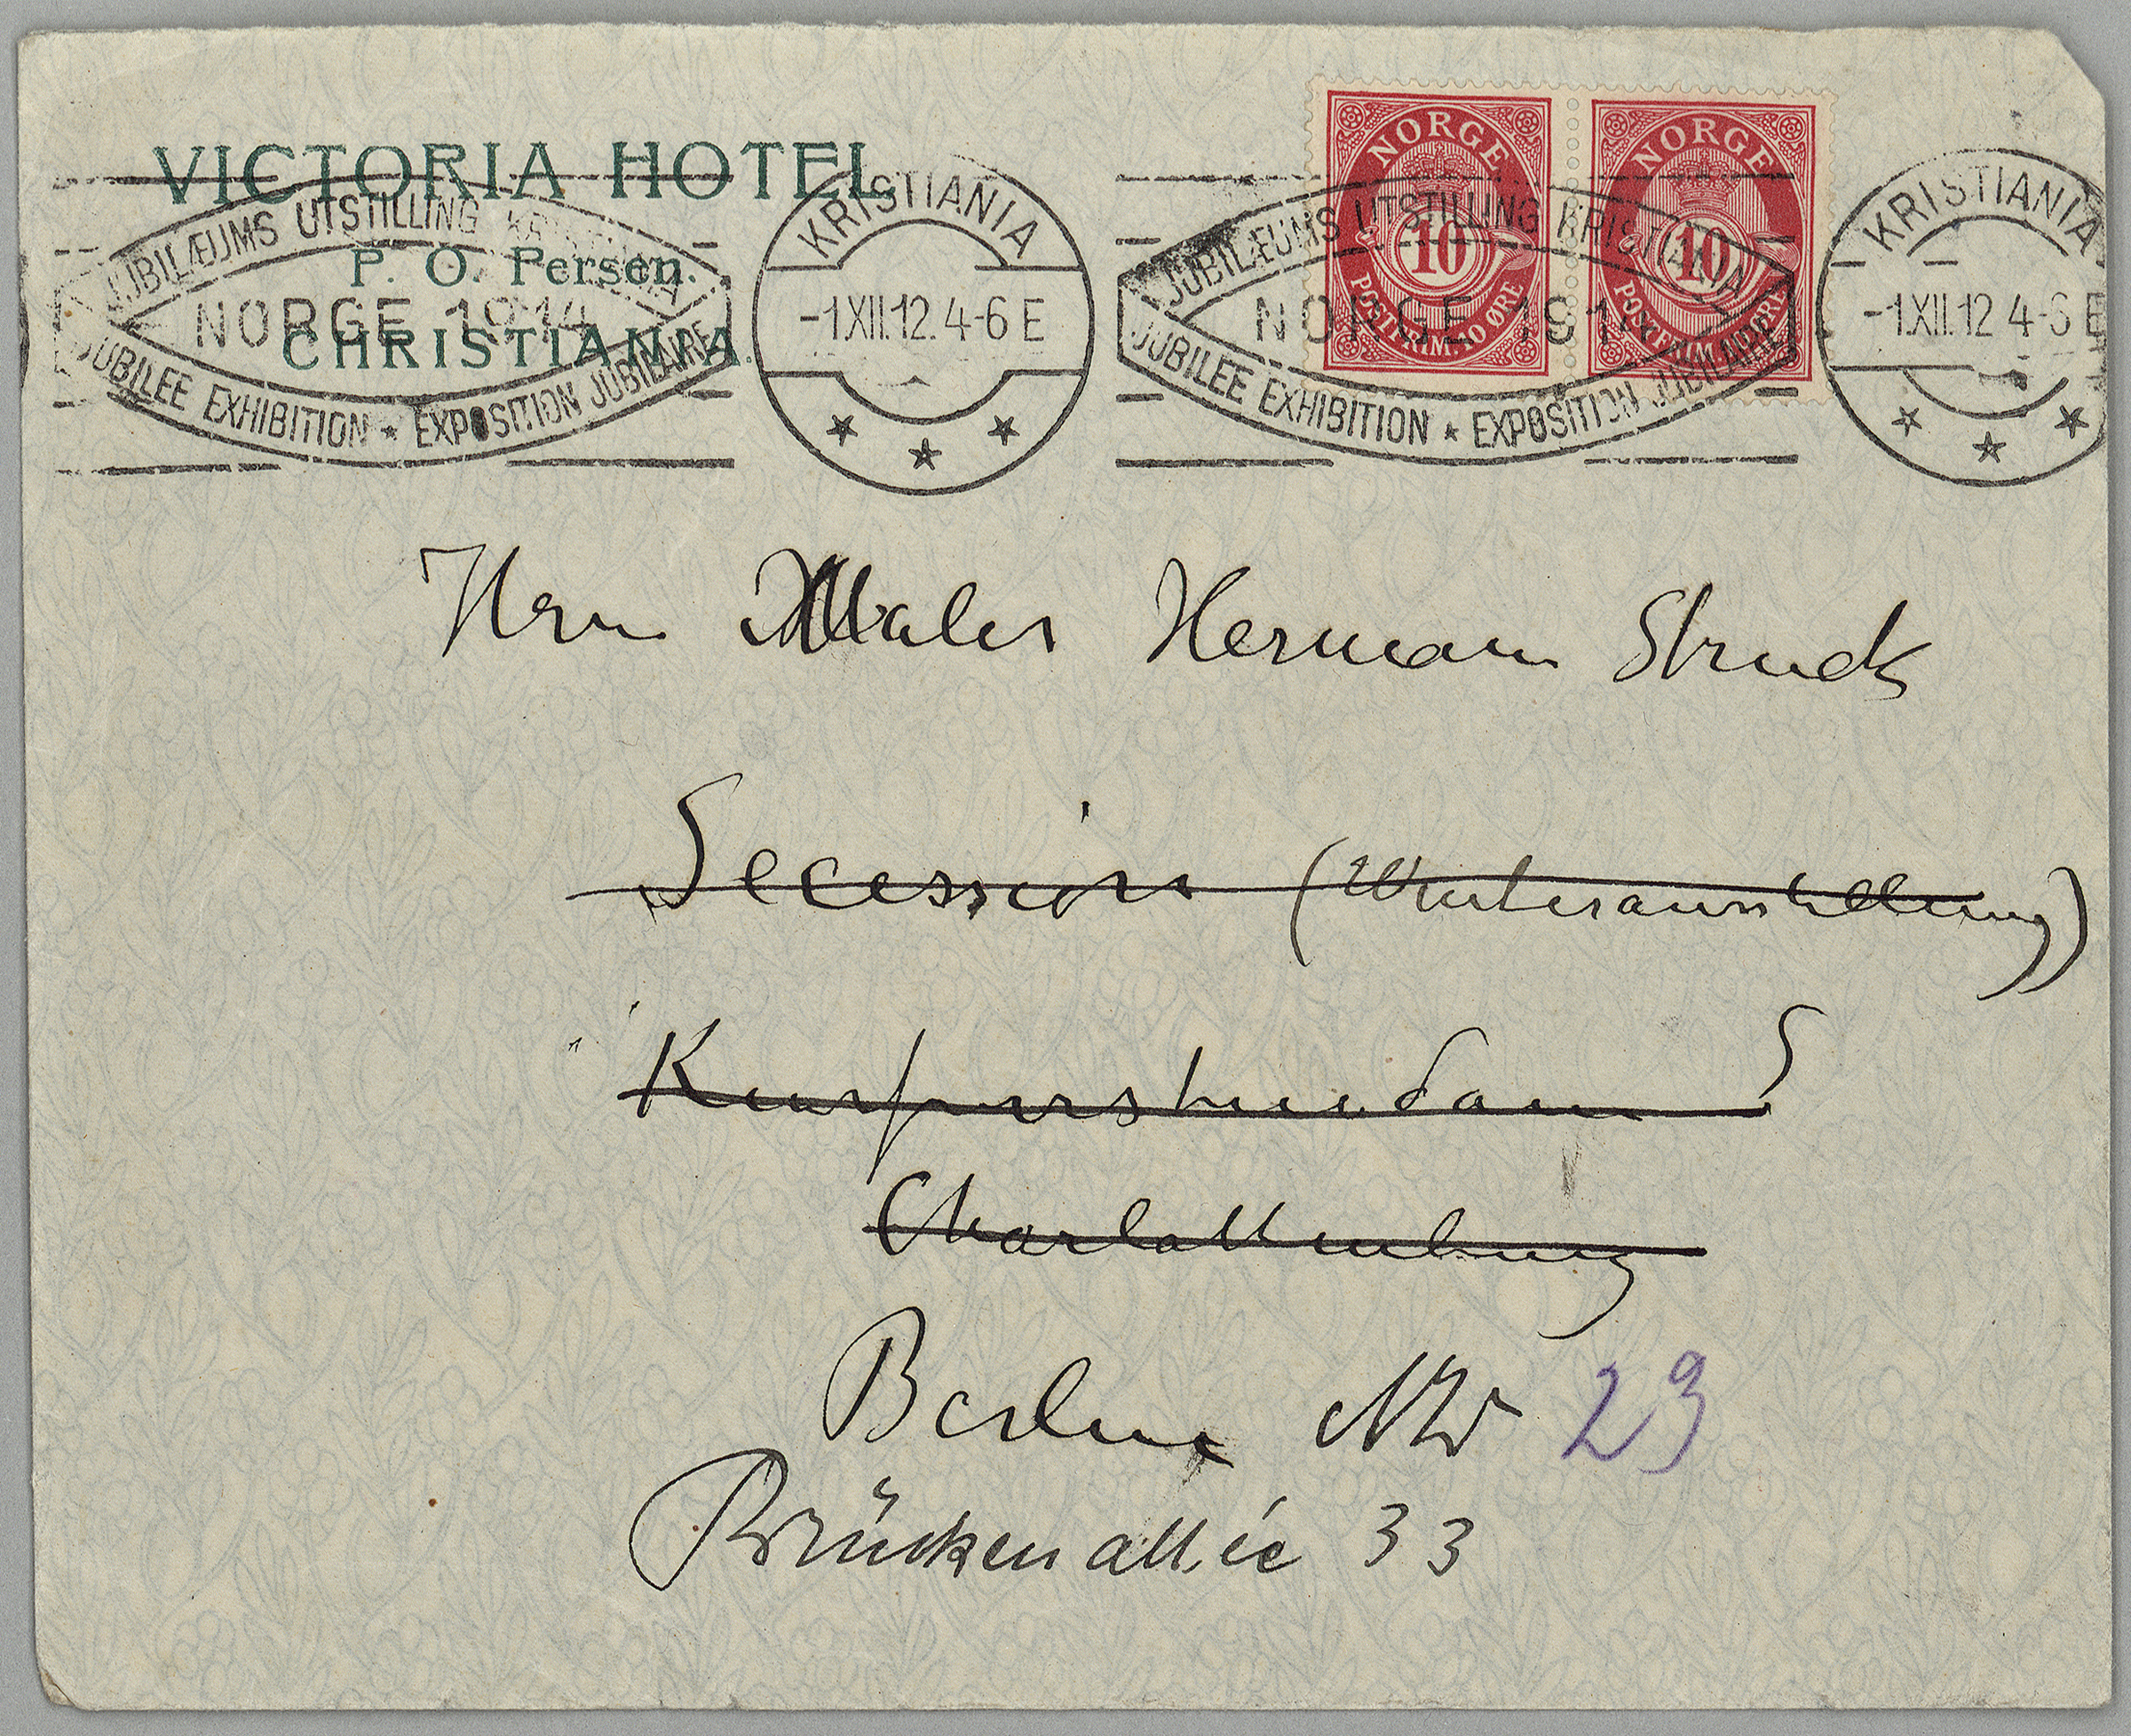 VICTORIA HOTEL.
P. O. Persen.
CHRISTIANIA.
JUBILÆUMS UTSTILLING KRISTIANIA
NORGE 1914
JUBILEE EXHIBITION ★ EXPOSITION JUBILAIRE
KRISTIANIA
-1.XII.12. 4-6 E
JUBILÆUMS UTSTILLING KRISTIANIA
NORGE 1914
JUBILEE EXHIBITION ★ EXPOSITION JUBILAIRE
NORGE
10
POSTFRIM. 10 ØRE
NORGE
10
POSTFRIM. 10 ØRE
KRISTIANIA
-1.XII.12 4-6 E
Hrn Maler Hermann Struck
Secession (Winterausstellung)
Kurfurstendam
Charlottenburg
Berlin NW 23
Brückenallée 33